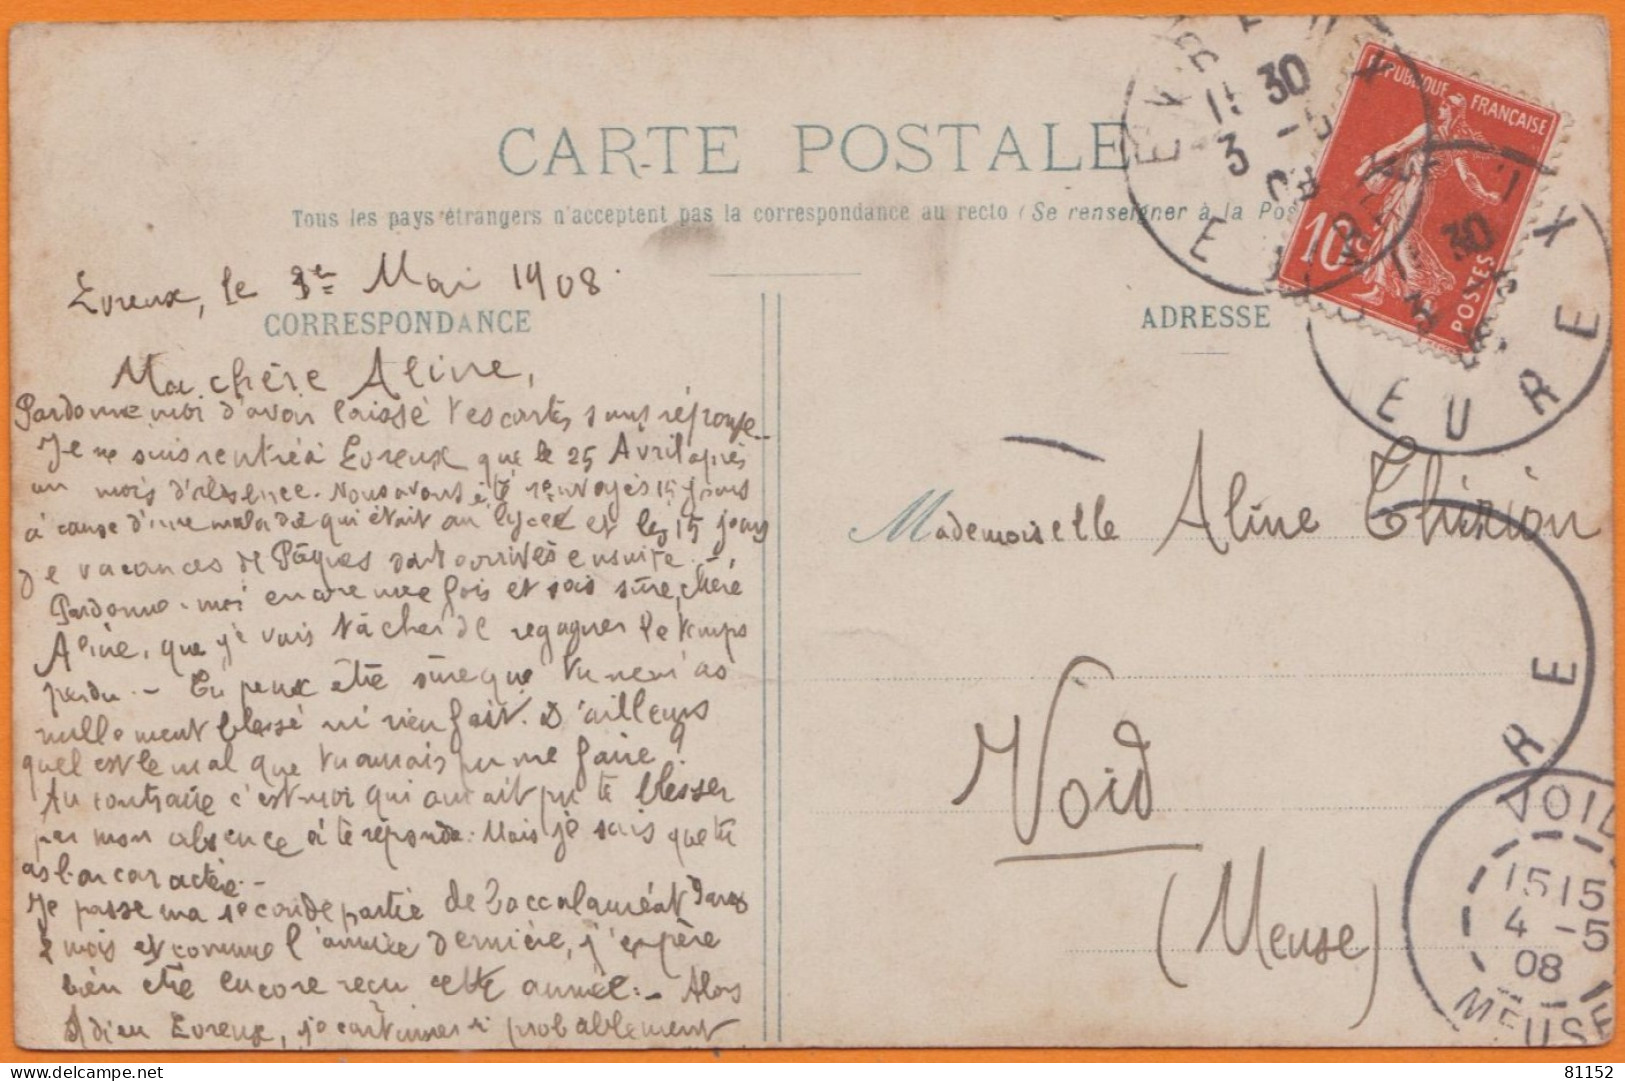 CARTE POSTALE
Tous les pays étrangers n'acceptent pas la correspondance au recto (Se renseigner à la Pos
Evreux, le 3 Mai 1908.
CORRESPONDANCE
Ma chère Aline,
Pardonne moi d'avoir laissé tes cartes sans réponse
Je ne suis rentré à Evreux que le 25 Avril après
un mois d'absence. Nous avons été renvoyés 15 jours
à cause d'une maladie qui était au lycée et les 15 jours
de vacances de Pâques sont arrivés ensuite. -
Pardonne-moi encore une fois et sois sûre, chère
Aline, que je vais tâcher de regagner le temps
perdu. - Tu peux être sûre que tu ne m'as
nullement blessé ni rien fait. D'ailleurs
quel est le mal que tu aurais pu me faire?
Au contraire c'est moi qui aurait pu te blesser
par mon absence à te répondre. Mais je sais que tu
as bon caractère. -
Je passe ma seconde partie de baccalauréat dans
2 mois et comme l'année dernière, j'espère
bien être encore reçu cette année. - Alors
Adieu Evreux, je continuerai probablement
ADRESSE
Mademoiselle Aline Thirion
Void
(Meuse)
REPUBLIQUE FRANÇAISE
10c
POSTES
EVREUX
30
3 -5
08
EURE
30
EURE
RE
VOID
15 15
4 -5
08
MEUSE
delcampe.net
timbrepost
81152